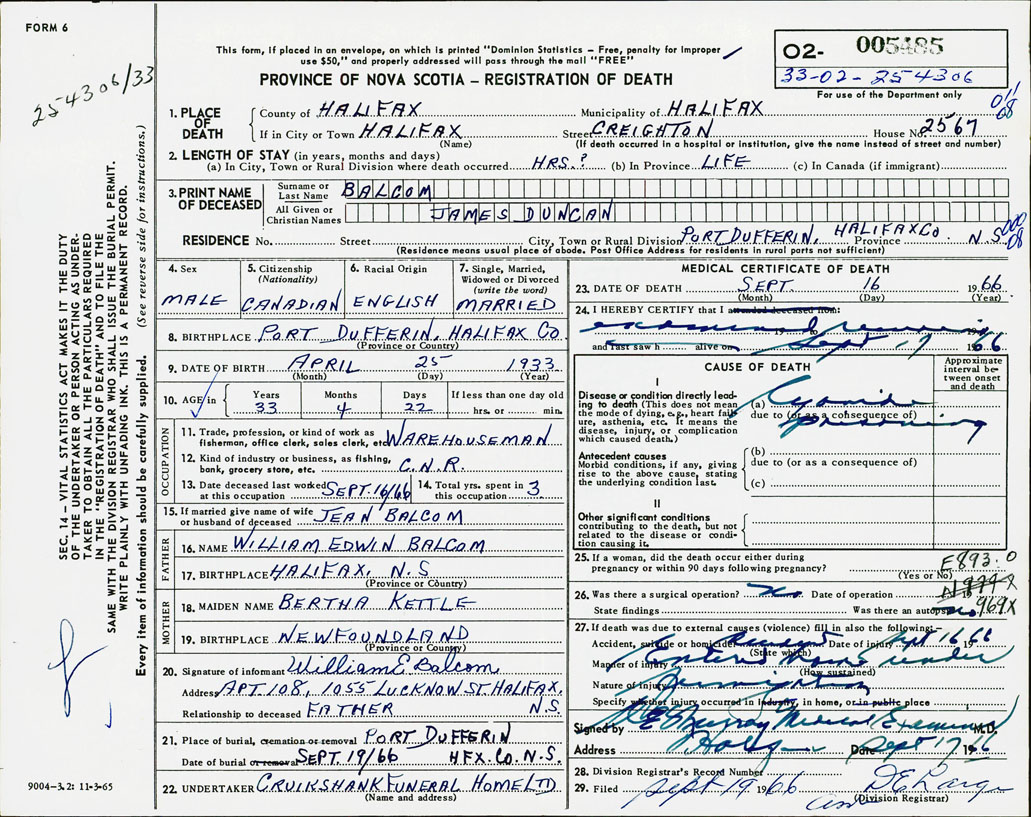 FORM 6
254306/33
This form, if placed in an envelope, on which is printed "Dominion Statistics – Free, penalty for improper
use $50," and properly addressed will pass through the mail "FREE"
PROVINCE OF NOVA SCOTIA – REGISTRATION OF DEATH
O2- 005485
33-02-254306
For use of the Department only
011
08
1. PLACE OF DEATH
County of HALIFAX Municipality of HALIFAX
If in City or Town HALIFAX Street CREIGHTON House No. 2567
(Name) (If death occurred in a hospital or institution, give the name instead of street and number)
2. LENGTH OF STAY (in years, months and days)
(a) In City, Town or Rural Division where death occurred HRS.? (b) In Province LIFE (c) In Canada (if immigrant)
3. PRINT NAME OF DECEASED
Surname or Last Name BALCOM
All Given or Christian Names JAMES DUNCAN
000
08
RESIDENCE No. Street City, Town or Rural Division PORT DUFFERIN, HALIFAX Co. Province N.S.
(Residence means usual place of abode. Post Office Address for residents in rural parts not sufficient)
4. Sex MALE
5. Citizenship (Nationality) CANADIAN
6. Racial Origin ENGLISH
7. Single, Married, Widowed or Divorced (write the word) MARRIED
8. BIRTHPLACE PORT DUFFERIN, HALIFAX Co
(Province or Country)
9. DATE OF BIRTH APRIL 25 1933
(Month) (Day) (Year)
10. AGE in Years 33 Months 4 Days 22 If less than one day old hrs. or min.
OCCUPATION
11. Trade, profession, or kind of work as
fisherman, office clerk, sales clerk, etc. WAREHOUSEMAN
12. Kind of industry or business, as fishing,
bank, grocery store, etc. C.N.R.
13. Date deceased last worked at this occupation SEPT. 16/66
14. Total yrs. spent in this occupation 3
15. If married give name of wife
or husband of deceased JEAN BALCOM
FATHER
16. NAME WILLIAM EDWIN BALCOM
17. BIRTHPLACE HALIFAX, N.S
(Province or Country)
MOTHER
18. MAIDEN NAME BERTHA KETTLE
19. BIRTHPLACE NEWFOUNDLAND
(Province or Country)
20. Signature of informant William E Balcom
Address APT 108, 1055 LUCKNOW ST HALIFAX,
N.S.
Relationship to deceased FATHER
21. Place of burial, cremation or removal PORT DUFFERIN
Date of burial or removal SEPT. 19/66 HFX. Co. N.S.
22. UNDERTAKER CRUIKSHANK FUNERAL HOME LTD
(Name and address)
MEDICAL CERTIFICATE OF DEATH
23. DATE OF DEATH SEPT. 16 1966
(Month) (Day) (Year)
24. I HEREBY CERTIFY that I attended deceased from:
examined remains
and last saw h alive on Sept 17 1966
CAUSE OF DEATH
Approximate interval between onset and death
I
Disease or condition directly leading to death (This does not mean the mode of dying, e.g., heart failure, asthenia, etc. It means the disease, injury, or complication which caused death.)
(a) Cyanide
due to (or as a consequence of)
poisoning
Antecedent causes
Morbid conditions, if any, giving rise to the above cause, stating the underlying condition last.
(b)
due to (or as a consequence of)
(c)
II
Other significant conditions
contributing to the death, but not related to the disease or condition causing it.
25. If a woman, did the death occur either during
pregnancy or within 90 days following pregnancy?
(Yes or No)
E893.0
26. Was there a surgical operation? no Date of operation
State findings Was there an autopsy no
969X
27. If death was due to external causes (violence) fill in also the following:–
Accident, suicide or homicide Date of injury Sept 16 1966
(State which)
Manner of injury Entered home under
(How sustained)
Nature of injury fumigation
Specify whether injury occurred in industry, in home, or in public place
Signed by Murray Medical Examiner M.D.
Address Date Sept 17 1966
28. Division Registrar's Record Number
29. Filed Sept 19 1966
(Division Registrar)
SEC. 14 – VITAL STATISTICS ACT MAKES IT THE DUTY
OF THE UNDERTAKER OR PERSON ACTING AS UNDER-
TAKER TO OBTAIN ALL THE PARTICULARS REQUIRED
IN THE "REGISTRATION OF DEATH" AND TO FILE THE
SAME WITH THE DIVISION REGISTRAR WHO SHALL ISSUE THE BURIAL PERMIT.
WRITE PLAINLY WITH UNFADING INK. THIS IS A PERMANENT RECORD.
Every item of information should be carefully supplied. (See reverse side for instructions.)
9004-3.2: 11-3-65